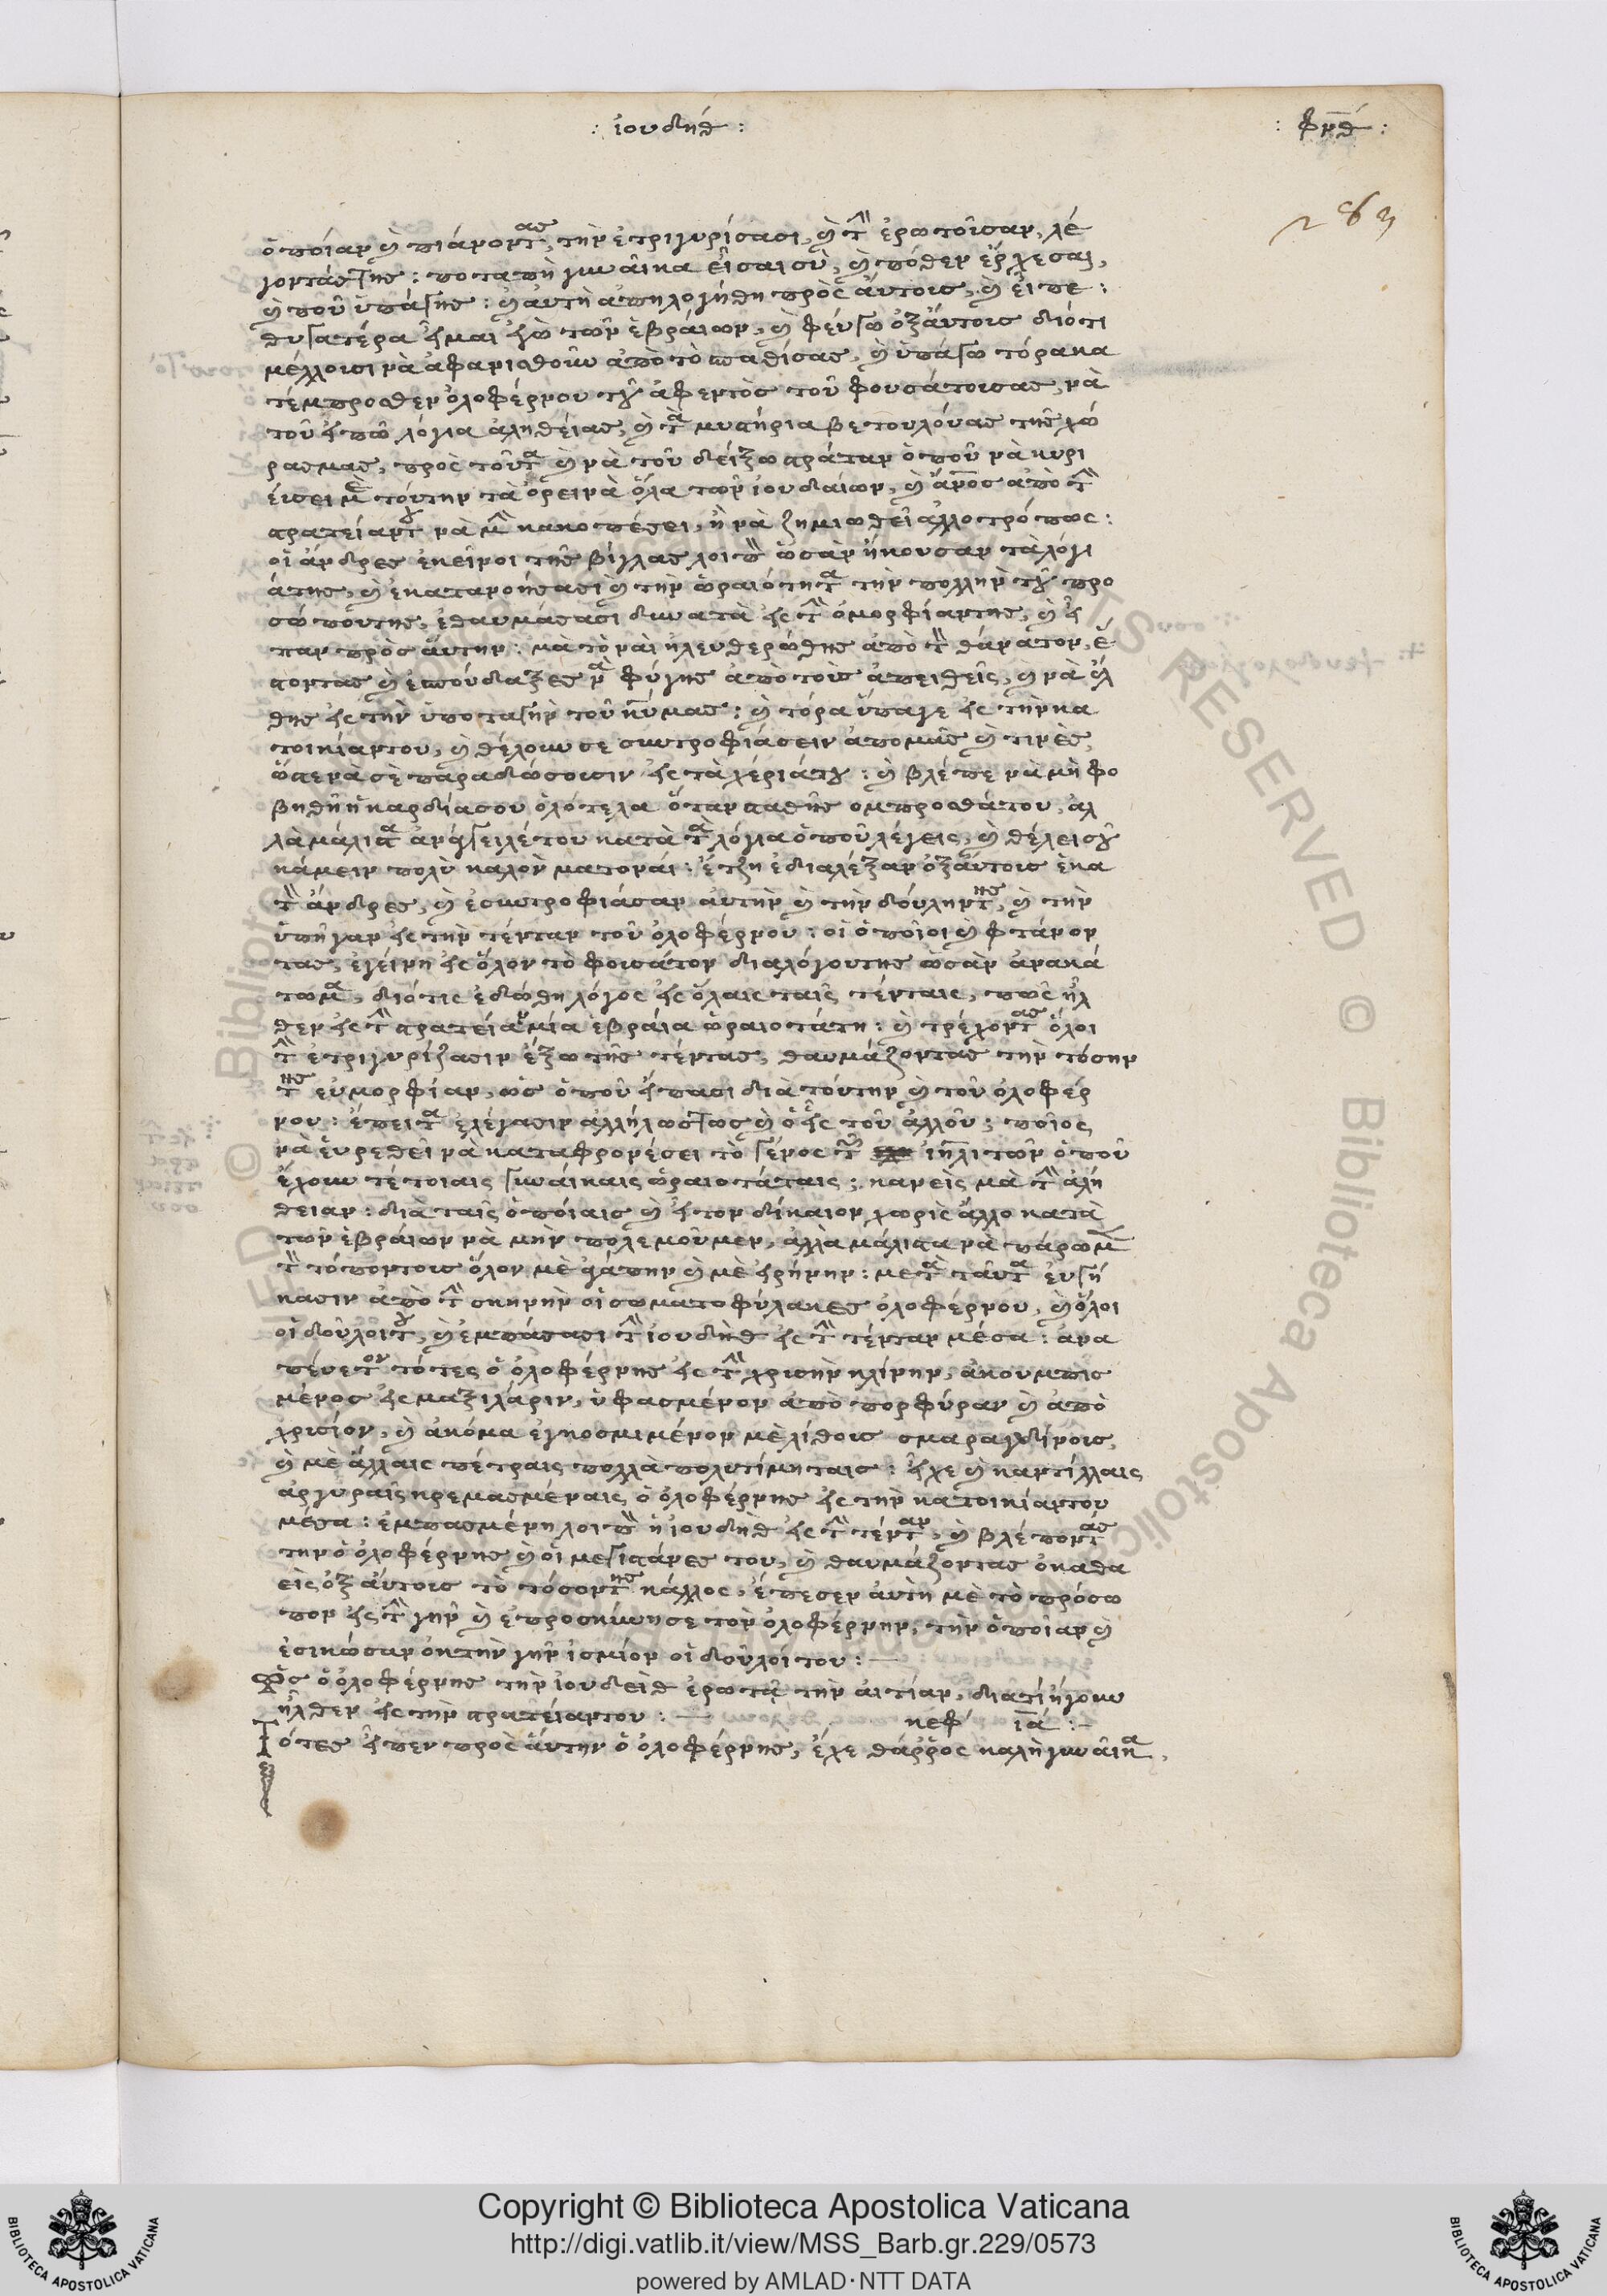 : ἰουδήθ :
: φκθ :
263
ὁποίαν καὶ πιάνοντας, τὴν ἐτριγυρίσασι, καὶ τὴν ἐρωτοῦσαν, λέ
γοντάςτης: ποταπὴ γυναῖκα εἶσαι σὺ, καὶ πόθεν ἔρχεσαι,
καὶ ποῦ ὑπάγης: καὶ αὐτὴ ἀπηλογήθη πρὸς αὐτους, καὶ εἶπε:
θυγατέρα εἶμαι ἐγὼ τῶν ἑβραίων, καὶ φεύγω ὀξαύτους διότι
μέλλουσι νὰ ἀφανισθοῦν ἀπὸ τὸ σπαθίσας, καὶ ὑπάγω τόρα κα
τέμπροσθεν ὀλοφέρνου τοῦ ἀφεντὸς τοῦ φουσάτουσας, νὰ
τοῦ εἰπῶ λόγια ἀληθείας, καὶ τὰ μυστήρια βετουλούας τῆς χώ
ρασμας, πρὸς τοῦτα καὶ νὰ τοῦ δείξω στράταν ὁποῦ νὰ κυρι
εύσει μὲ τούτην τὰ ὀρεινὰ ὅλα τῶν ἰουδαίων, καὶ ἄνος ἀπὸ τὴν
στρατείαντου νὰ μὴν κακοπέσει, ἢ νὰ ζημιωθεῖ ἀλλοτρόπως:
οἱ ἄνδρες ἐκεῖνοι τῆς βίγλας λοιπὸν ὡσὰν ἤκουσαν τὰ λόγι
άτης, καὶ ἐκατανοήσασι καὶ τὴν ὡραιότητα τὴν πολλὴν τοῦ προ
σώπουτης, ἐθαυμάσασι δυνατὰ εἰς τὴν ὀμορφίαντης, καὶ εἶ
παν πρὸς αὐτην: μὰ τὸ ναὶ ἠλευθερώθης ἀπὸ τὸν θάνατον, ἔ
στοντας καὶ ἐσπούδαξες νὰ φύγης ἀπὸ τοὺς ἀπειθεῖς, καὶ νὰ ἔλ
θης εἰς τὴν ὑποταγὴν τοῦ κυρίουμας: καὶ τόρα ὕπαγε εἰς τὴν κα
τοικίαντου, καὶ θέλουν σε συντροφιάσειν ἀπομᾶς καὶ τινὲς,
ὥστε νὰ σὲ παραδώσουσιν εἰς τὰ χέριάτου: καὶ βλέπε νὰ μὴ φο
βηθῆ ἡ καρδίασου ὁλότελα ὅταν σταθῆς ομπροσθάτου, ἀλ
λὰ μάλιστα ἀνάγγειλέ του κατὰ τὰ λόγια ὁποῦ λέγεις, καὶ θέλει σοῦ
κάμειν πολὺ καλὸν ματοναί: ἔτζη ἐδιαλέξαν ὀξαύτους ἑκα
τὸν ἄνδρες, καὶ ἐσυντροφιάσαν αὐτὴν καὶ τὴν δούληντης, καὶ τὴν
ὑπῆγαν εἰς τὴν τένταν τοῦ ὀλοφέρνου: οἱ ὁποῖοι καὶ φτάνον
τας, ἐγείνη εἰς ὅλον τὸ φουσάτον διαλόγουτης ὡσὰν ἀνακά
τωμα, διότις ἐδώθη λόγος εἰς ὅλαις ταῖς τένταις, πῶς ἦλ
θεν εἰς τὴν στρατείαν μία ἑβραία ὡραιοτάτη: καὶ τρέχοντας ὅλοι
τὴν ἐτριγυρίζασιν ἔξω τῆς τέντας, θαυμάζοντας τὴν τόσην
της εὐμορφίαν, ὡς ὁποῦ εἴπασι διὰ τούτην καὶ τοῦ ὀλοφέρ
νου: ἔπειτα ἐλέγασιν ἀλλήλωςτως καὶ ὁ εἷς τοῦ ἀλλοῦ: ποῖος
νὰ εὑρεθεῖ νὰ καταφρονέσει τὸ γένος τῶν ἰηλιτῶν ὁποῦ
ἔχουν τέτοιαις γυναίκαις ὡραιοτάταις; κανεὶς μὰ τὴν ἀλή
θειαν: διὰ ταῖς ὁποίαις καὶ εἶ τον δίκαιον χωρὶς ἄλλο κατὰ
τῶν ἑβραίων νὰ μὴν πολεμοῦμεν, ἀλλὰ μάλιστα νὰ πάρωμεν
τὸν τόποντους ὅλον μὲ ἀγάπην καὶ μὲ εἰρήνην: μετὰ ταῦτα ἐυγή
κασιν ἀπὸ τὴν σκηνὴν οἱ σωματοφύλακες ὀλοφέρνου, καὶ ὅλοι
οἱ δοῦλοιτου, καὶ ἐμπάσασι τὴν ἰουδὴθ εἰς τὴν τένταν μέσα: ἀνα
πένετον τότες ὁ ὀλοφέρνης εἰς τὴν χρισὴν κλίνην, ἀκουμπισ
μένος εἰς μαξιλάριν, ὑφασμένον ἀπὸ πορφύραν καὶ ἀπὸ
χρισίον, καὶ ἀκόμα ἐγκοσμιμένον μὲ λίθους σμαραγδίνους,
καὶ μὲ ἄλλαις πέτραις πολλὰ πολυτίμηταις: εἶχε καὶ καντίλλαις
ἀργυραῖς κρεμασμέναις ὁ ὀλοφέρνης εἰς τὴν κατοικίαντου
μέσα: ἐμπασμένη λοιπὸν ἡ ἰουδὴθ εἰς τὴν τένταν, καὶ βλέποντάς
την ὁ ὀλοφέρνης καὶ οἱ μεγιστάνες του, καὶ θαυμάζοντας ὁ καθα
εὶς ὀξαύτους τὸ τόσοντης κάλλος, ἔπεσεν ἀυτὴ μὲ τὸ πρόσω
πον εἰς τὴν γῆν καὶ ἐπροσκύνησε τὸν ὀλοφέρνην, τὴν ὁποῖαν καὶ
ἐσικώσαν ὀκ τὴν γῆν ἰσμίον οἱ δοῦλοί του: —
Πῶς ὁ ὀλοφέρνης τὴν ἰουδεὶθ ἐρωτᾶ τὴν αἰτίαν, διατί ἤγουν
ἦλθεν εἰς τὴν στρατείαντου: — κεφ ιᾱ: —
Τότες εἶπεν πρὸς αὐτην ὁ ὀλοφέρνης, ἔχε θάρρος καλὴ γυναῖκα,
Copyright © Biblioteca Apostolica Vaticana
http://digi.vatlib.it/view/MSS_Barb.gr.229/0573
powered by AMLAD·NTT DATA